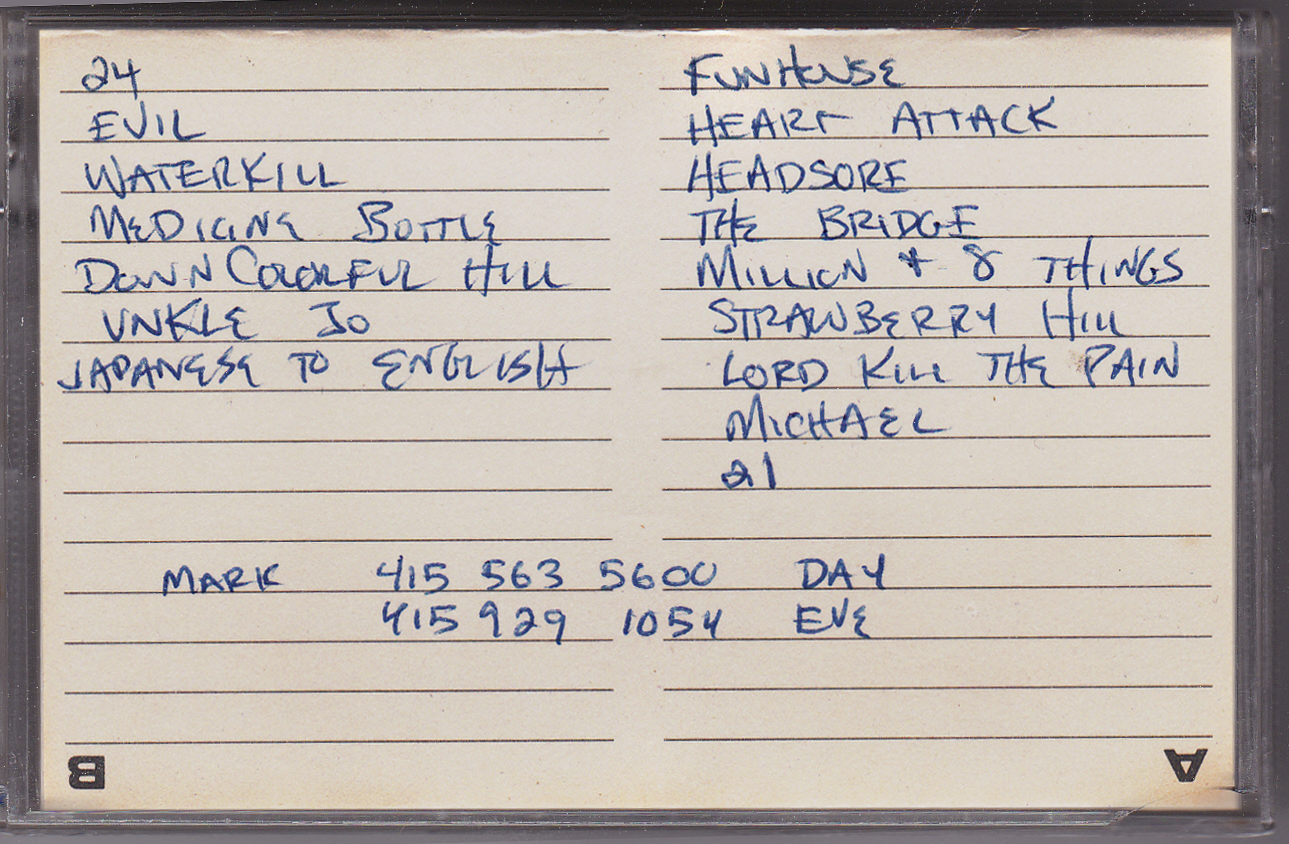 24
EVIL
WATERKILL
MEDICINE BOTTLE
DOWN COLORFUL HILL
UNKLE JO
JAPANESE TO ENGLISH
FUNHOUSE
HEART ATTACK
HEADSORE
THE BRIDGE
MILLION & 8 THINGS
STRAWBERRY HILL
LORD KILL THE PAIN
MICHAEL
21
MARK 415 563 5600 DAY
415 929 1054 EVE
B A